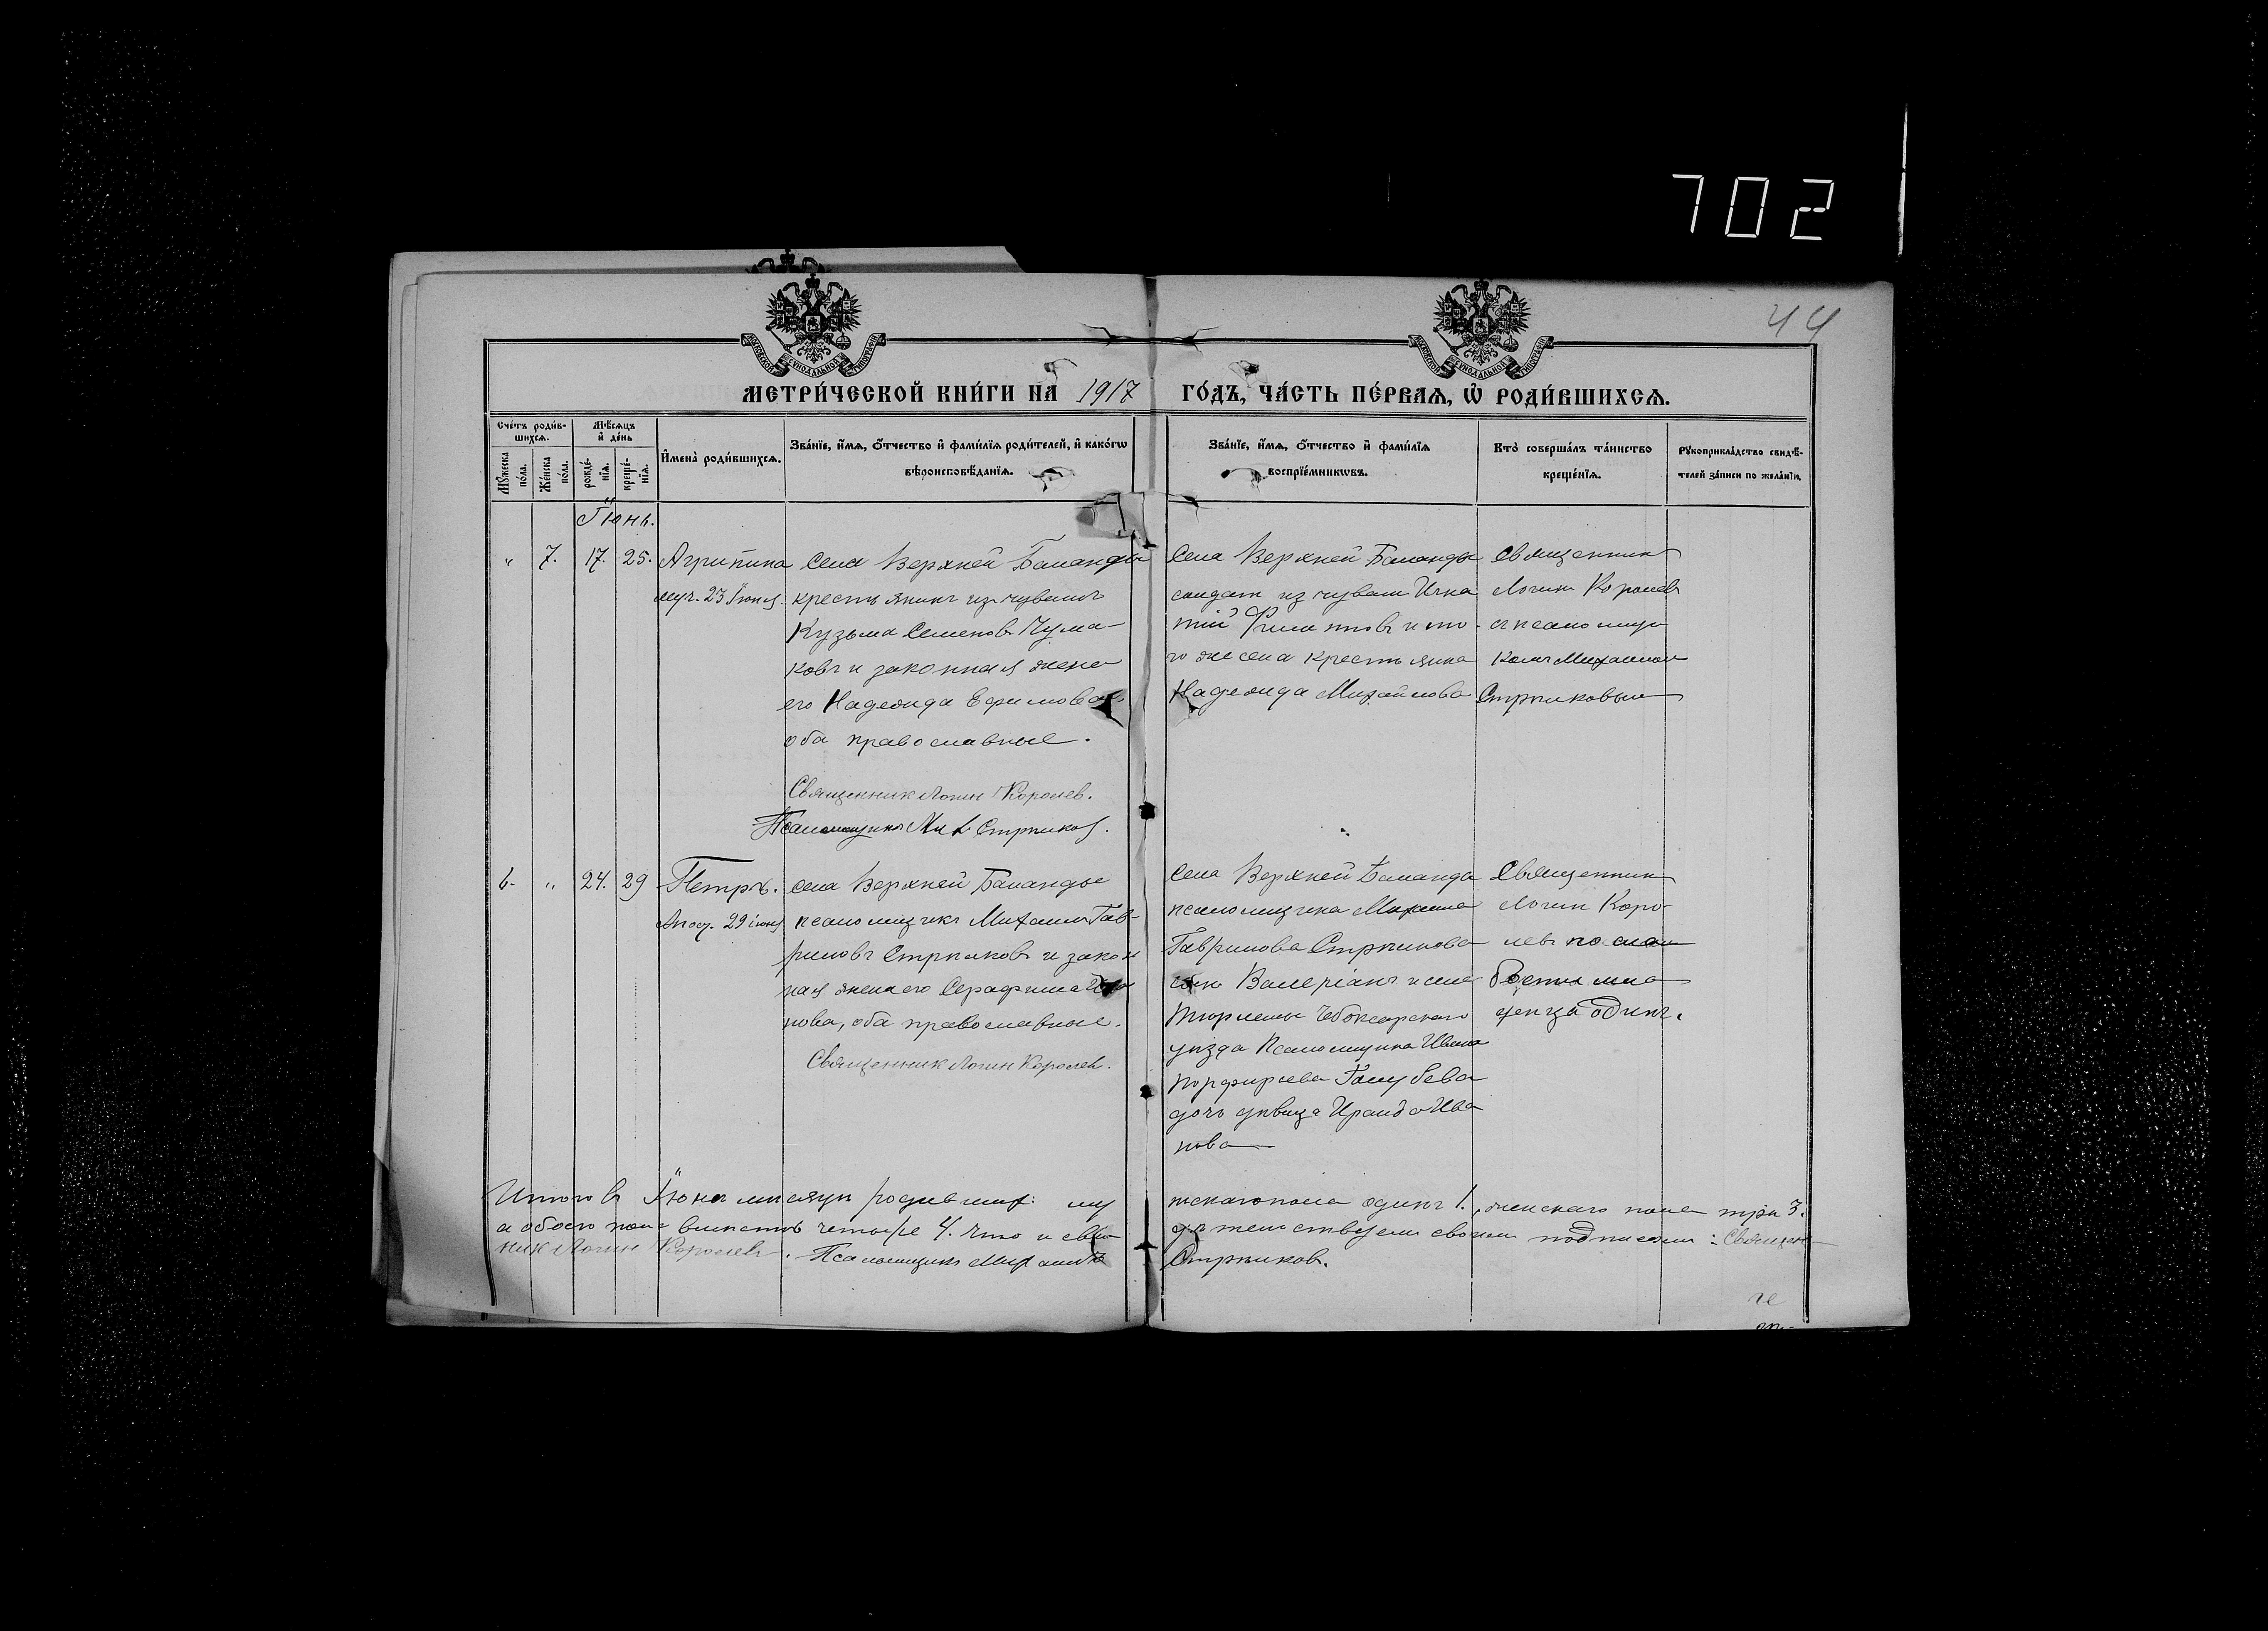 702
44
МЕТРИ́ЧЕСКОЙ КНИ́ГИ НА 1917 ГО́ДЪ, ЧА́СТЬ ПЕ́РВАѦ, Ѡ҆ РОДИ́ВШИХСѦ.
Сче́тъ роди́в-
шихсѧ.
Мѣ́сѧцъ
и҆ де́нь
Мꙋ́жеска
по́ла.
Же́нска
по́ла.
рожде́-
нїѧ.
креще́-
нїѧ.
И҆мена̀ роди́вшихсѧ.
Зва́нїе, и҆́мѧ, ѻ҆́тчество и҆ фами́лїѧ роди́телей, и҆ како́гѡ
вѣроисповѣ́данїѧ.
Зва́нїе, и҆́мѧ, ѻ҆́тчество и҆ фами́лїѧ
воспрїе́мникѡвъ.
Кто̀ соверша́лъ та́инство
креще́нїѧ.
Рꙋкоприкла́дство свидѣ́-
телей за́писи по жела́нїю.
Іюнь.
" 7. 17. 25. Агрипина
муч. 23 Іюня.
села Верхней Баланды
крестьянинъ изъ чувашъ
Кузьма Семеновъ Чума-
ковъ и законная жена
его Надежда Ефимова
оба православные.
Священник Логин Королев.
Псаломщикъ Стрѣлков.
Села Верхней Баланды
солдат из чуваш Игна
тій Филиповъ и то-
го же села крестьянка
Надежда Михайлова
Священник
Логин Королевъ
съ псаломщи
комъ Михаилом
Стрѣлковым
6. " 24. 29 Петръ.
Апос. 29 іюня
села Верхней Баланды
псаломщикъ Михаилъ Гав-
риловъ Стрѣлковъ и закон
ная жена его Серафима
нова, оба православные.
Священник Логин Королев.
Села Верхней Баланды
псаломщика Михаила
Гаврилова Стрѣлкова
сынъ Валеріанъ и села
Тюрлемы Чебоксарскаго
уѣзда Псаломщика Ивана
Порфирьева Голубева
дочь дѣвица Ираида Ива
нова
Священник
Логин Коро-
левъ по сла
бости мла
денца одинъ.
Итого въ Іюнѣ мѣсяцѣ родившихъ: му жскаго пола одинъ 1., женскаго пола три 3.
а обоего пола вмѣстѣ четыре 4. Что и свидѣтельствуем своими подписями: Священ-
ник Логин Королевъ. Псаломщикъ Михаилъ Стрѣлков.